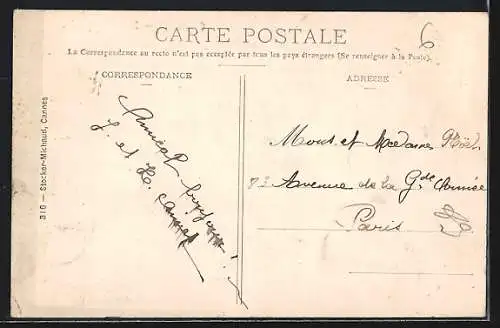 CARTE POSTALE
6
La Correspondance au recto n'est pas acceptée par tous les pays étrangers (Se renseigner à la Poste).
CORRESPONDANCE
ADRESSE
J. et H.
Mons et Madame
83 Avenue de la Gde Armée
Paris
316 — Stocker-Michaud, Cannes